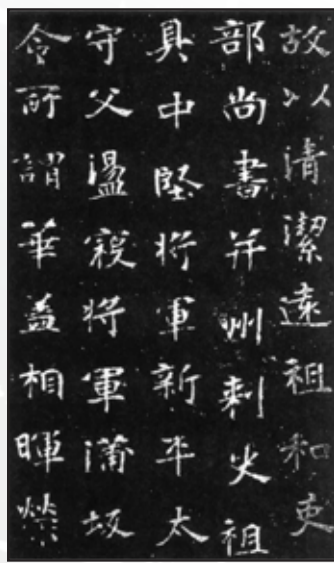 故以清潔遠祖和吏
部尚書并州刺史祖
具中堅將軍新平太
守父盪寇將軍蒲坂
令所謂華蓋相暉榮